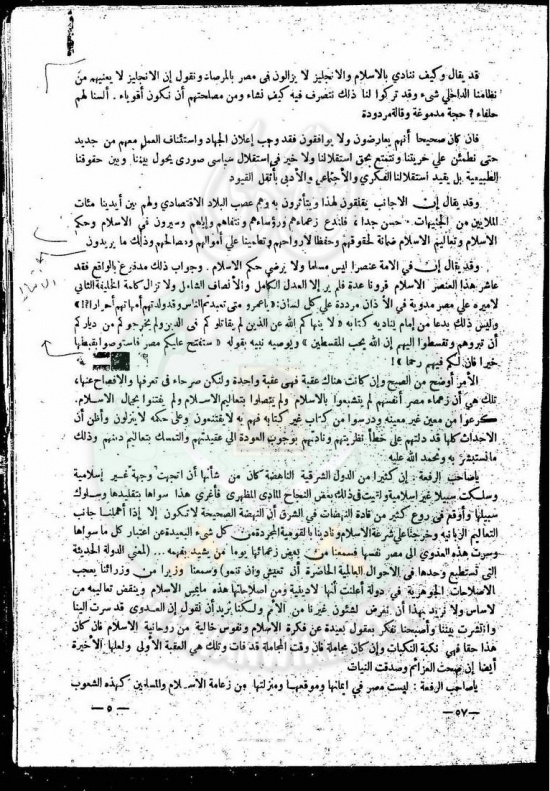 قد يقال وكيف ننادي بالاسلام والانجليز لا يزالون فى مصر بالمرصاد ونقول إن الانجليز لا يعنيهم من
نظامنا الداخلي شىء وقد تركوا لنا ذلك نتصرف فيه كيف نشاء ومن مصلحتهم أن نكون أقوياء . ألسنا لهم
حلفاء ? حجة مدموغة وقالة مردودة
فان كان صحيحا أنهم يعارضون ولا يوافقون فقد وجب إعلان الجهاد واستئناف العمل معهم من جديد
حتى نطمئن علي حريتنا ونتمتع بحق استقلالنا ولا خير فى استقلال سياسى صورى يحول بيننا وبين حقوقنا
الطبيعية بل يقيد استقلالنا الفكري والأجتماعي والأدبى بأثقل القيود
وقد يقال إن الاجانب يقلقون لهذا ويتأثرون به وهم عصب البلاد الاقتصادي ولهم بين أيدينا مئات
الملايين من الجنيهات . حسن جدا ، فلندع زعماءهم ورؤساءهم ونتفاهم وإياهم وسيرون فى الاسلام وحكم
الاسلام وتعاليم الاسلام ضمانة لحقوقهم وحفظا لارواحهم وتطمينا علي أموالهم ومصالحهم وذلك ما يريدون
وقد يقال إن فى الامة عنصرا ليس مسلما ولا يرضي حكم الاسلام . وجواب ذلك مدفوع بالواقع فقد
عاشر هذا العنصر الاسلام قرونا عدة فلم ير إلا العدل الكامل والأنصاف الشامل ولا تزال كلمة الخليفة الثاني
لاميره علي مصر مدوية فى الأذان مرددة علي كل لسان : « ياعمرو متى تعبدتم الناس وقد ولدتهم أمهاتهم أحرارا ?! »
وليس ذلك بدعا من إمام يناديه كتابه « لا ينهاكم الله عن الذين لم يقاتلوكم فى الدين ولم يخرجوكم من دياركم
أن تبروهم وتقسطوا اليهم إن الله يحب المقسطين » ويوصيه نبيه بقوله « ستفتح عليكم مصر فاستوصوا بقبطها
خيرا فان لكم فيهم رحما » !
الأمر أوضح من الصبح وإن كانت هناك عقبة فهى عقبة واحدة ولنكن صرحاء فى تعرفها والافصاح عنها ،
تلك هي أن زعماء مصر أنفسهم لم يتشبعوا بالاسلام ولم يتصلوا بتعاليم الاسلام ولم يفتنوا بجمال الاسلام .
كرعوا من معين غير معينه ودرسوا من كتاب غير كتابه فهم به لا يقتنعون وعلي حكمه لا ينزلون وأظن أن
الاحداث كلها قد دلتهم على خطأ نظريتهم ونادتهم بوجوب العودة الي عقيدتهم والتمسك بتعاليم دينهم وذلك
ما نستبشر به ونحمد الله عليه
ياصاحب الرفعة : إن كثيرا من الدول الشرقية الناهضة كان من شأنها أن اتجهت وجهة غير إسلامية
وسلكت سبيلا غير اسلامية ولقيت فى ذلك بعض النجاح المادى المظهرى فأغري هذا سواها بتقليدها وسلوك
سبيلها وأوقع فى روع كثير من قادة النهضات في الشرق أن النهضة الصحيحة لا تكون إلا إذا أهملنا جانب
التعاليم الربانيه وخرجنا علي شرعة الاسلام ونادينا بالقومية المجردة من كل شىء البعيدة عن اعتبار كل ما سواها
وسرت هذه العدوي الى مصر نفسها فسمعنا من بعض زعمائها يوما من يشيد بفهمه ... (لمعني الدولة الحديثة
التى تستطيع وحدها فى الاحوال العالمية الحاضرة أن تعيش وأن تنمو) وسمعنا وزيرا من وزرائنا يعجب
الاصلاحات الجوهرية في دولة أعلنت أنها لادينية ومن اصلاحاتها هذه مايمس الاسلام وينقض تعاليمه من
لاساس ولا نريد بهذا أن نعرض لشئون غيرنا من الأمم ولكنا نريد أن نقول إن العدوى قد سرت الينا
وانتشرت بيننا وأصبحنا نفكر بعقول بعيدة عن فكرة الاسلام ونفوس خالية من روحانية الاسلام فان كان
هذا حقا فهي نكبة النكبات وإن كان مجاملة فان وقت المجاملة قد فات وتلك هي العقبة الأولي ولعلها الأخيرة
أيضا إن صحت العزائم وصدقت النيات
ياصاحب الرفعة : ليست مصر فى ايمانها وموقعها ومنزلتها من زعامة الاسلام والمسلمين كهذه الشعوب
— ٥٧ —
— ٥ —